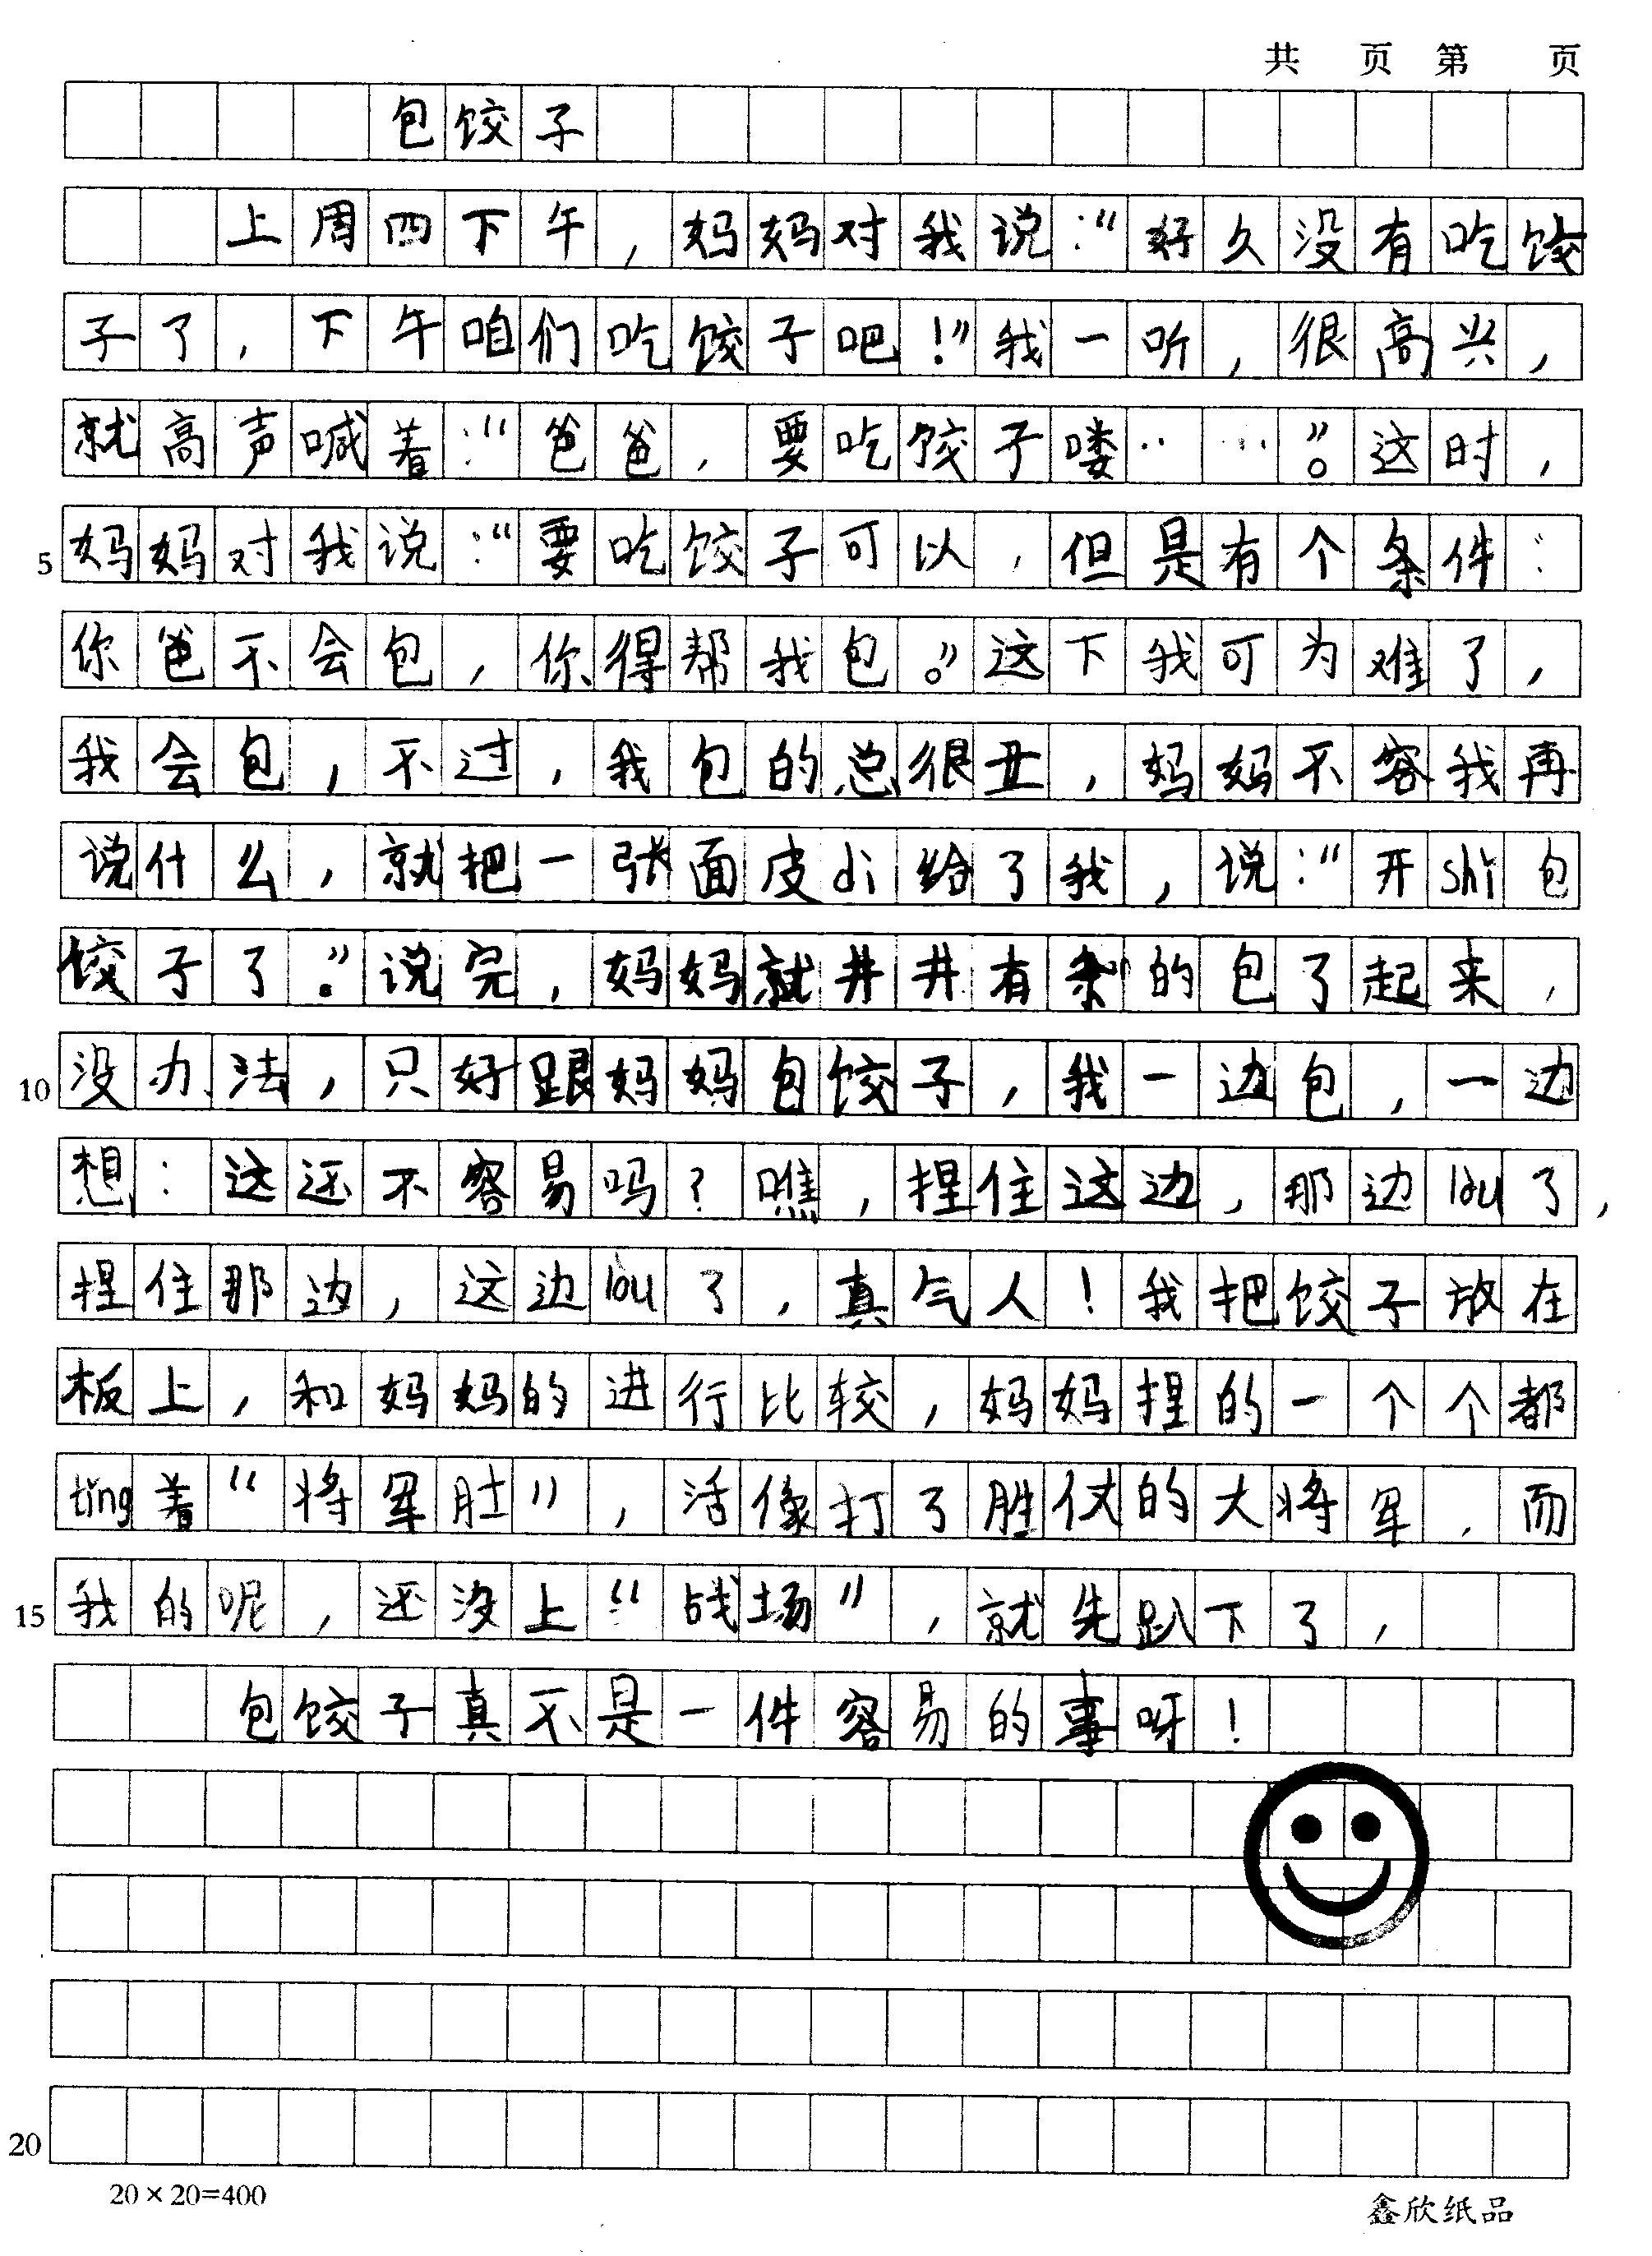 共 页 第 页
包饺子
上周四下午，妈妈对我说：“好久没有吃饺
子了，下午咱们吃饺子吧！”我一听，很高兴，
就高声喊着：“爸爸，要吃饺子喽……”。这时，
5 妈妈对我说：“要吃饺子可以，但是有个条件：
你爸不会包，你得帮我包。”这下我可为难了，
我会包，不过，我包的总很丑，妈妈不容我再
说什么，就把一张面皮dì给了我，说：“开shǐ包
饺子了。”说完，妈妈就井井有条的包了起来，
10 没办法，只好跟妈妈包饺子，我一边包，一边
想：这还不容易吗？瞧，捏住这边，那边lòu了，
捏住那边，这边lòu了，真气人！我把饺子放在
板上，和妈妈的进行比较，妈妈捏的一个个都
tǐng着“将军肚”，活像打了胜仗的大将军，而
15 我的呢，还没上“战场”，就先趴下了，
包饺子真不是一件容易的事呀！
20
20×20=400 鑫欣纸品